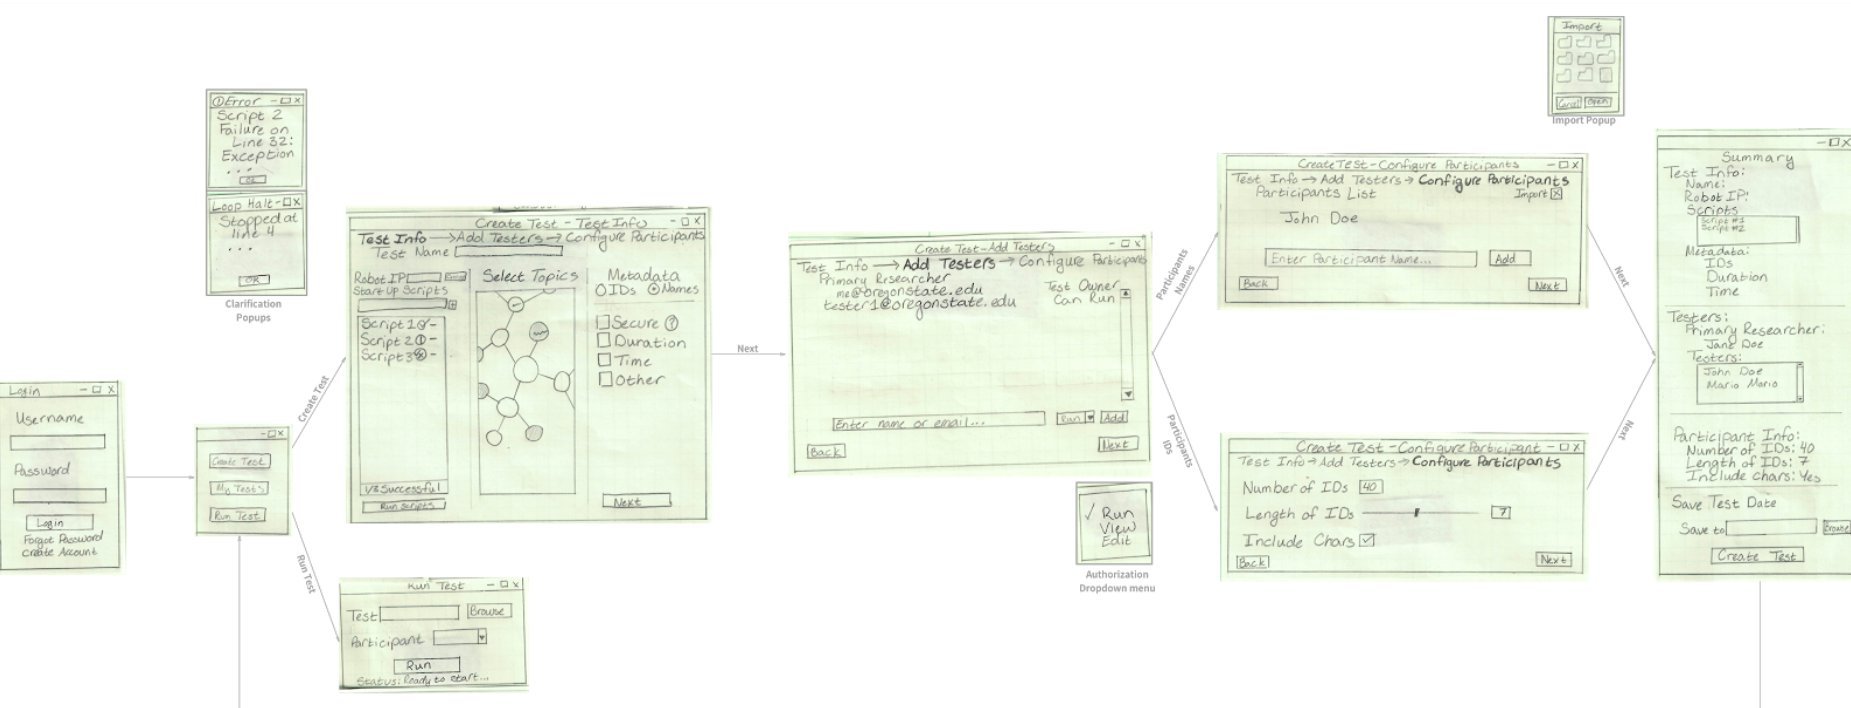 Login
Username
Password
Login
Forgot Password
Create Account
Create Test
My Tests
Run Test
Error
Script 2
Failure on
Line 32:
Exception
...
OK
Loop Halt
Stopped at
line 4
...
OK
Clarification
Popups
Create Test
Run Test
Create Test - Test Info
Test Info → Add Testers → Configure Participants
Test Name
Robot IP
Start Up Scripts
Script 1
Script 2
Script 3
1/3 Successful
Run Scripts
Select Topics
Metadata
IDs Names
Secure ?
Duration
Time
Other
Next
Run Test
Test Browse
Participant
Run
Status: Ready to start...
Next
Create Test - Add Testers
Test Info → Add Testers → Configure Participants
Primary Researcher
me@oregonstate.edu Test Owner
tester1@oregonstate.edu Can Run
Enter name or email... Run Add
Back Next
Run
View
Edit
Authorization
Dropdown menu
Participants
Names
Participants
IDs
Import
Cancel Open
Import Popup
Create Test - Configure Participants
Test Info → Add Testers → Configure Participants
Participants List Import
John Doe
Enter Participant Name... Add
Back Next
Create Test - Configure Participant
Test Info → Add Testers → Configure Participants
Number of IDs 40
Length of IDs 7
Include Chars
Back Next
Next
Next
Summary
Test Info:
Name:
Robot IP:
Scripts
Script #1
Script #2
Metadata:
IDs
Duration
Time
Testers:
Primary Researcher:
Jane Doe
Testers:
John Doe
Mario Mario
Participant Info:
Number of IDs: 40
Length of IDs: 7
Include chars: Yes
Save Test Date
Save to Browse
Create Test